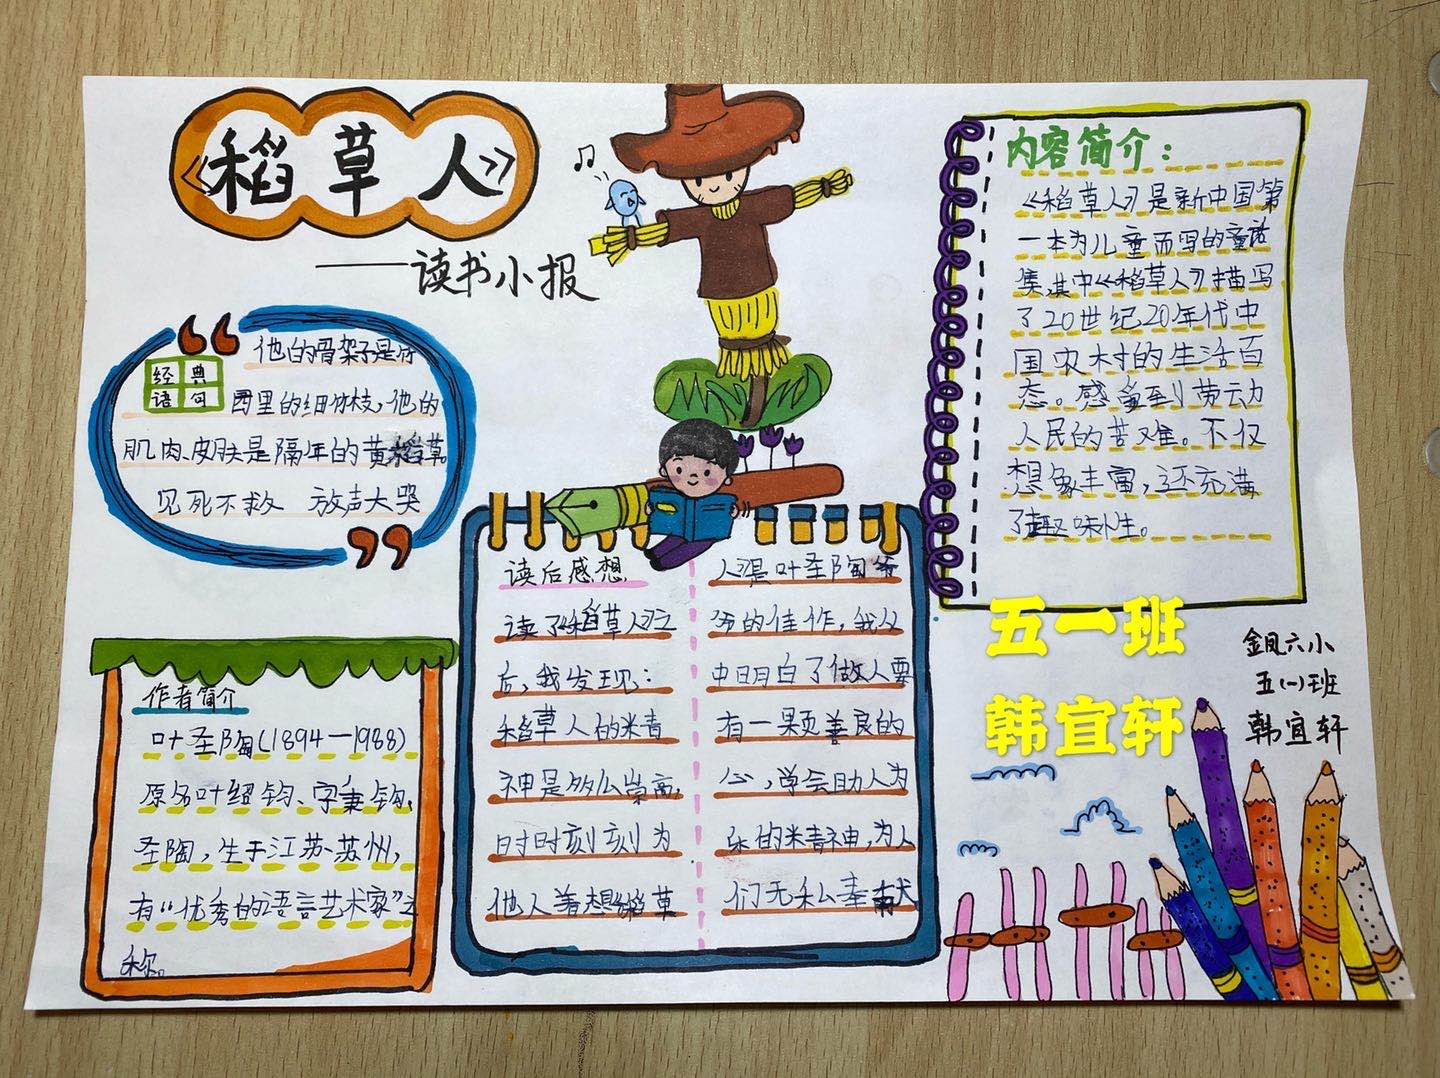 《稻草人》
——读书小报
经典
语句
他的骨架子是竹
园里的细竹枝，他的
肌肉、皮肤是隔年的黄稻草。
见死不救 放声大哭
作者简介
叶圣陶(1894—1988)
原名叶绍钧、字秉钧，
圣陶，生于江苏苏州，
有“优秀的语言艺术家”之
称。
读后感想
读了《稻草人》之
后，我发现：
稻草人的精
神是多么崇高，
时时刻刻为
他人着想《稻草
人》是叶圣陶爷
爷的佳作，我从
中明白了做人要
有一颗善良的
心，学会助人为
乐的精神，为人
们无私奉献
内容简介：
《稻草人》是新中国第
一本为儿童而写的童话
集，其中《稻草人》描写
了20世纪20年代中
国农村的生活百
态。感受到劳动
人民的苦难。不仅
想象丰富，还充满
了趣味性。
五一班
韩宜轩
金凤六小
五(一)班
韩宜轩